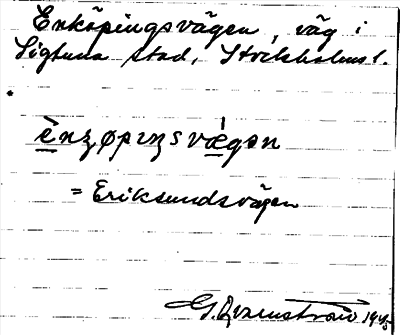 Enköpingsvägen, väg i
Sigtuna stad, Stockholms l.
ènȥøpɪŋsvæ̀gən
= Eriksundsvägen
G. 1945